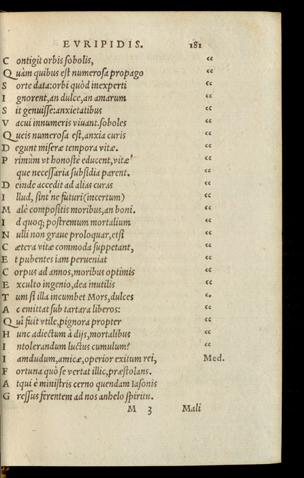 EVRIPIDIS. 181
C ontigit orbis sobolis, "
Q uàm quibus est numerosa propago "
S orte data: orbi quòd inexperti "
I gnorent, an dulce, an amarum "
S it genuisse: anxietatibus "
V acui innumeris viuant. soboles "
Q ueis numerosa est, anxia curis "
D egunt miseræ tempora vitæ. "
P rimùm vt honestè educent, vitæq́; "
que necessaria subsidia parent. "
D einde accedit ad alias curas "
I llud, sint ne futuri (incertum) "
M alè compositis moribus, an boni. "
I d quoq; postremum mortalium "
N ulli non graue proloquar, etsi "
C ætera vitæ commoda suppetant, "
E t pubentes iam perueniat "
C orpus ad annos, moribus optimis "
E xculto ingenio, dea inutilis "
T um si illa incumbet Mors, dulces "
A c emittat sub tartara liberos: "
Q uî fuit vtile, pignora propter "
H unc adiectum à dijs, mortalibus "
I ntolerandum luctus cumulum? "
I amdudum, amicæ, operior exitum rei, Med.
F ortuna quò se vertat illic, præstolans.
A tqui è ministris cerno quendam Iasonis
G ressus ferentem ad nos anhelo spiritu.
M 3 Mali